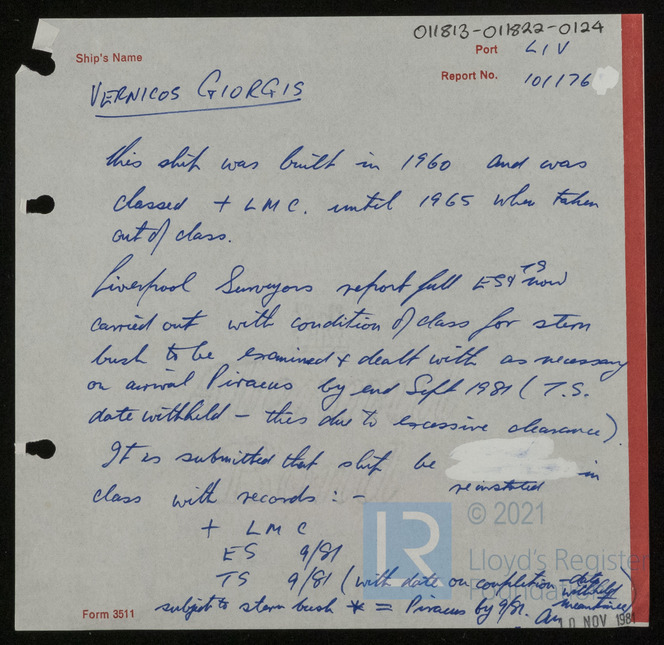 011813-011822-0124
Ship's Name
Port LIV
Report No. 101176
VERNICOS GIORGIS
this ship was built in 1960 and was
classed + LMC. until 1965 when taken
out of class.
Liverpool Surveyors report full ES & TS now
carried out with condition of class for stern
bush to be examined & dealt with as necessary
on arrival Piraeus by end Sept 1981 (T.S.
date withheld - this due to excessive clearance).
It is submitted that ship be reinstated in
class with records :-
+ LMC
ES 9/81
TS 9/81 (with date on completion - date withheld meantime)
subject to stern bush * = Piraeus by 9/81.
10 NOV 1981
Form 3511
LR
© 2021
Lloyd's Register
Foundation